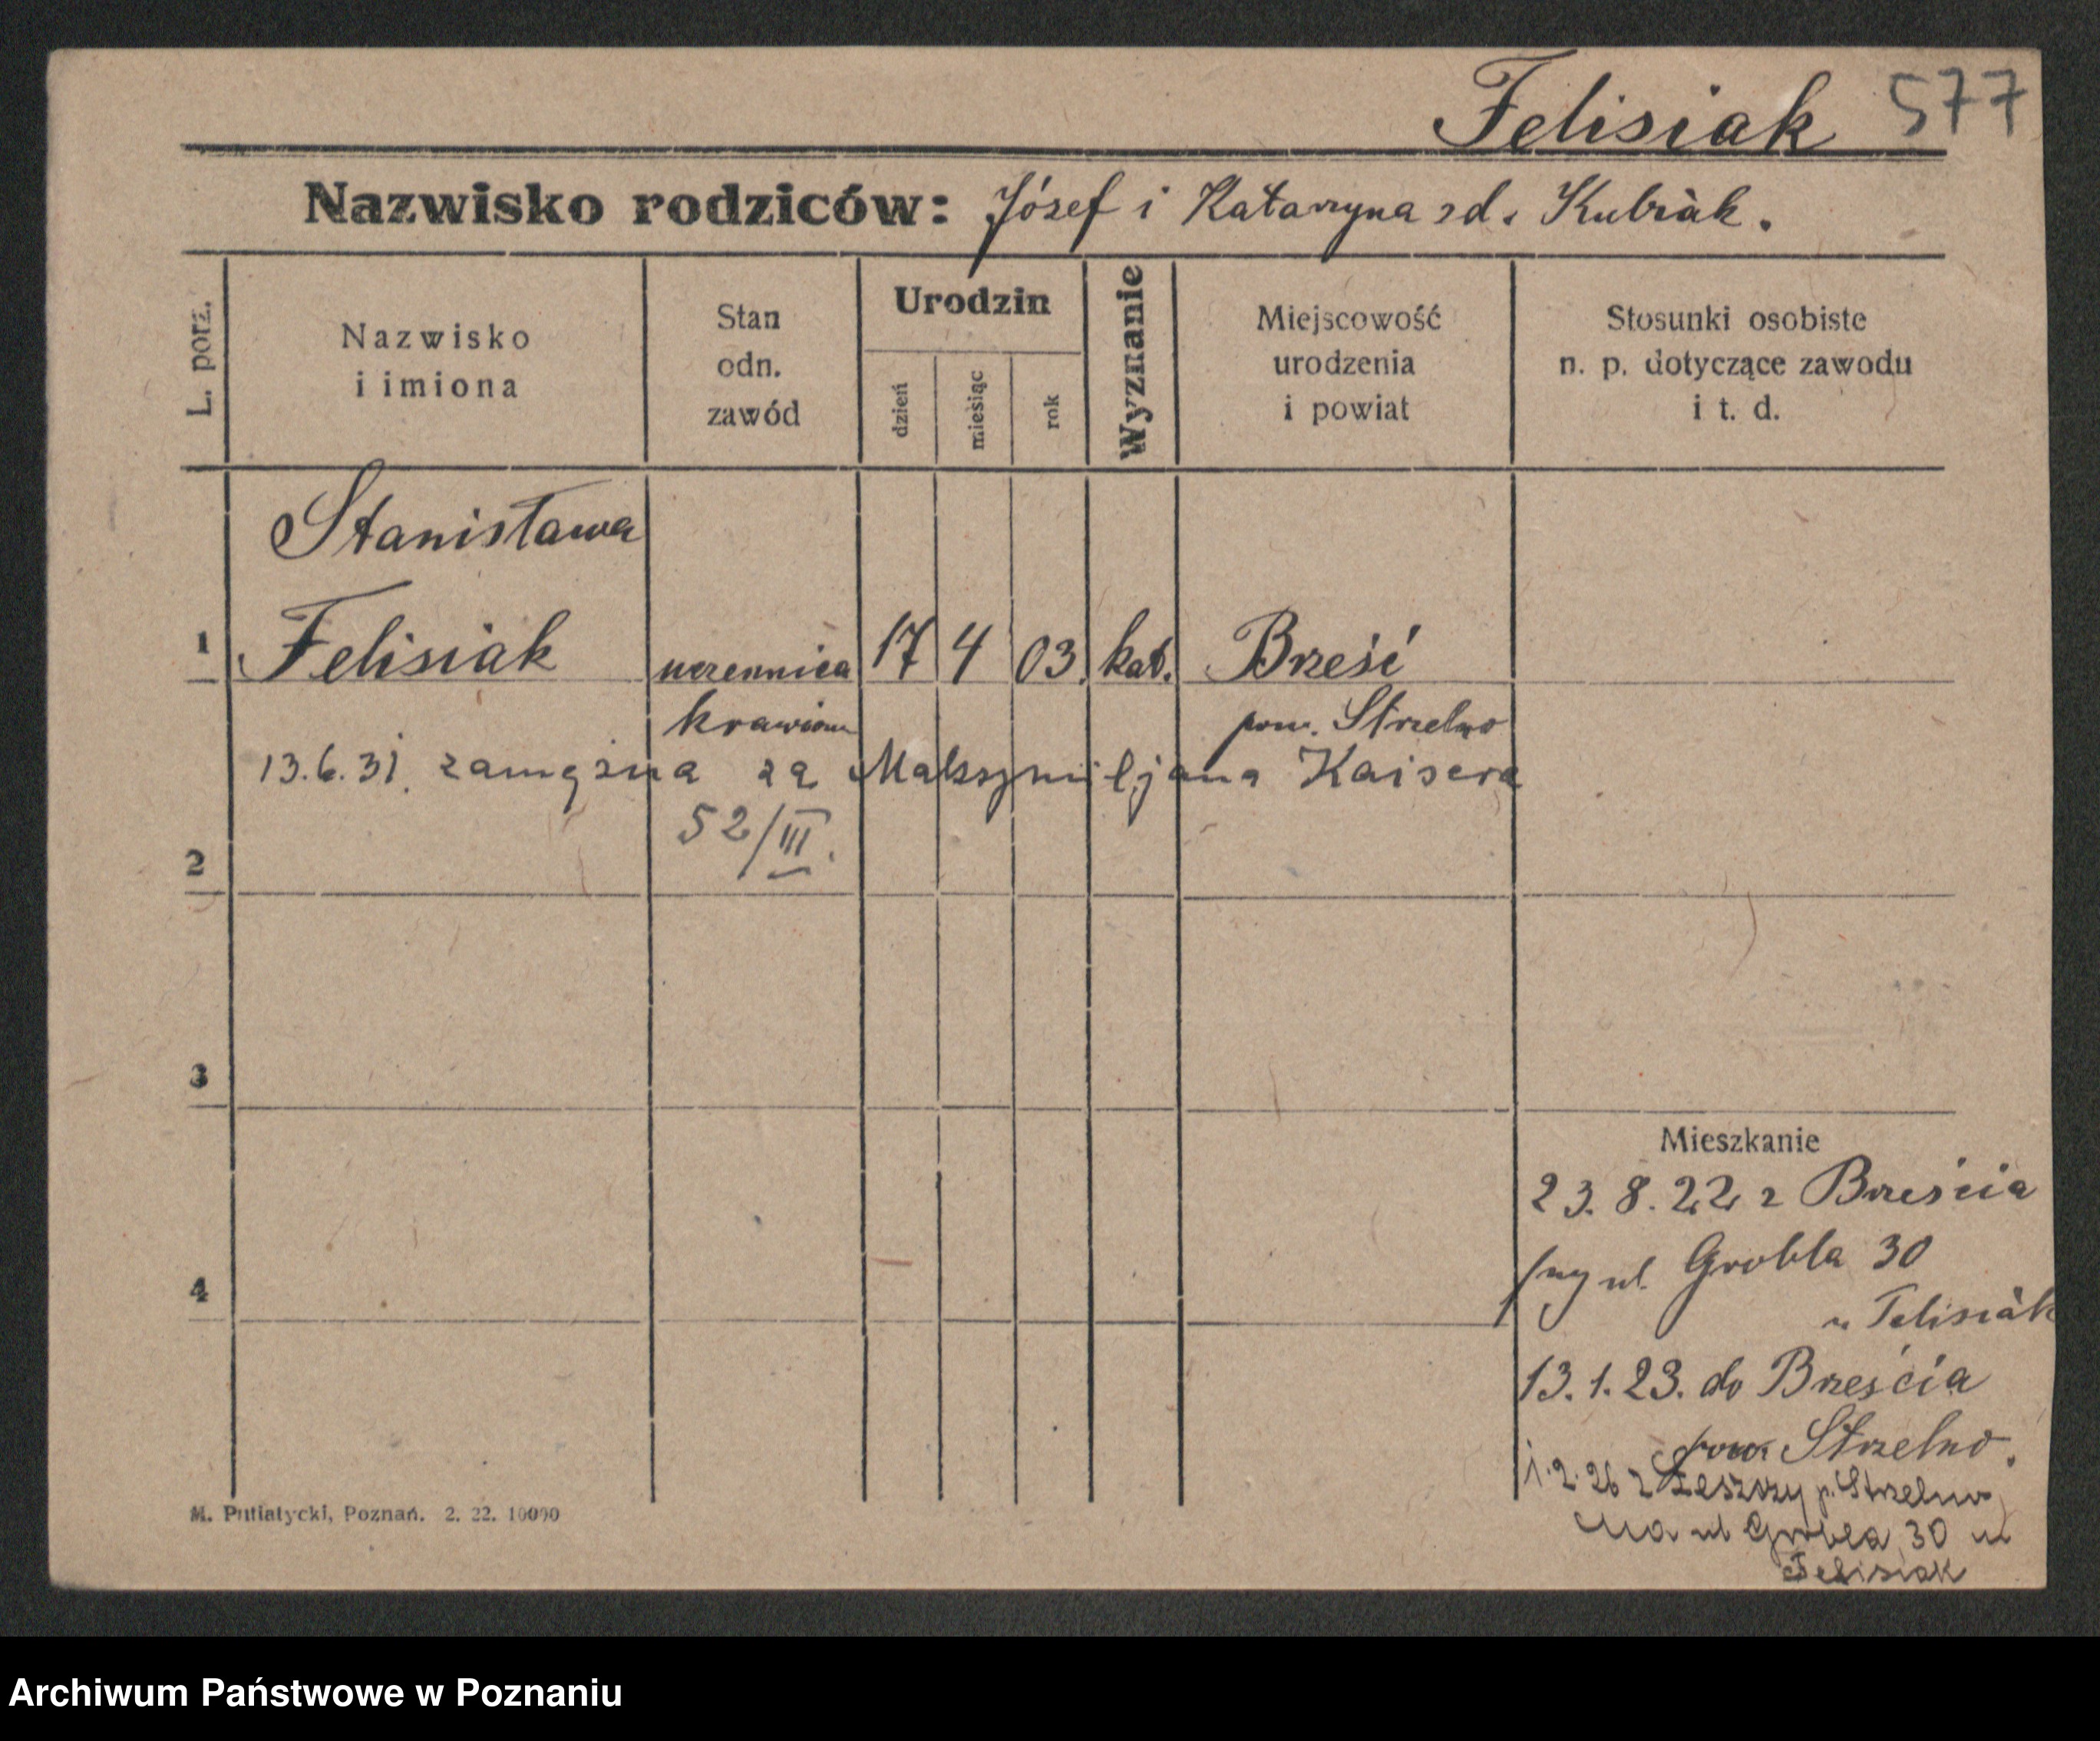 Felisiak 577
Nazwisko rodziców: Józef i Katarzyna zd. Kubiak.
L. porz.
Nazwisko
i imiona
Stan
odn.
zawód
Urodzin
dzień
miesiąc
rok
Wyznanie
Miejscowość
urodzenia
i powiat
Stosunki osobiste
n. p. dotyczące zawodu
i t. d.
Stanisława
1 Felisiak uczennica 17 4 03. kat. Brześć
pow. Strzelno
13.6.31. zamężna za Maksymiljana Kaisera
52/III.
2
3
Mieszkanie
23.8.22 z Brześcia
przy ul. Grobla 30
4
u Felisiak
13.1.23. do Brześcia
pow. Strzelno.
1.2.26 z p. Strzelno
na ul Grobla 30 u
Felisiak
M. Putiatycki, Poznań. 2. 22. 10000
Archiwum Państwowe w Poznaniu